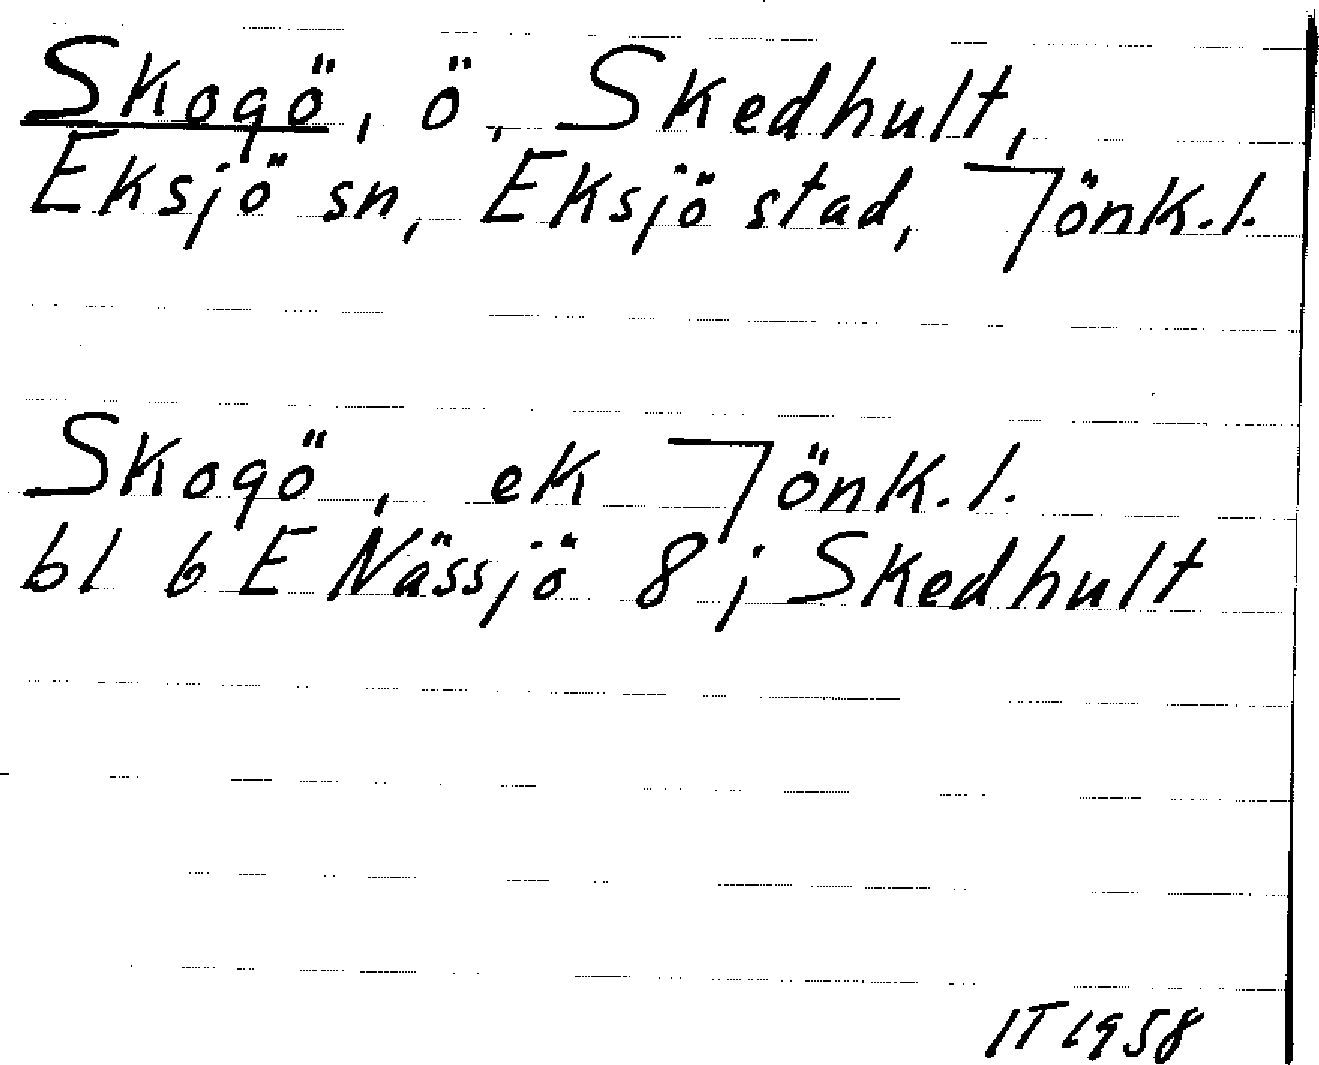 Skogö, ö, Skedhult,
Eksjö sn, Eksjö stad, Jönk.l.
Skogö, ek Jönk.l.
bl 6 E Nässjö 8 j Skedhult
IT 1958